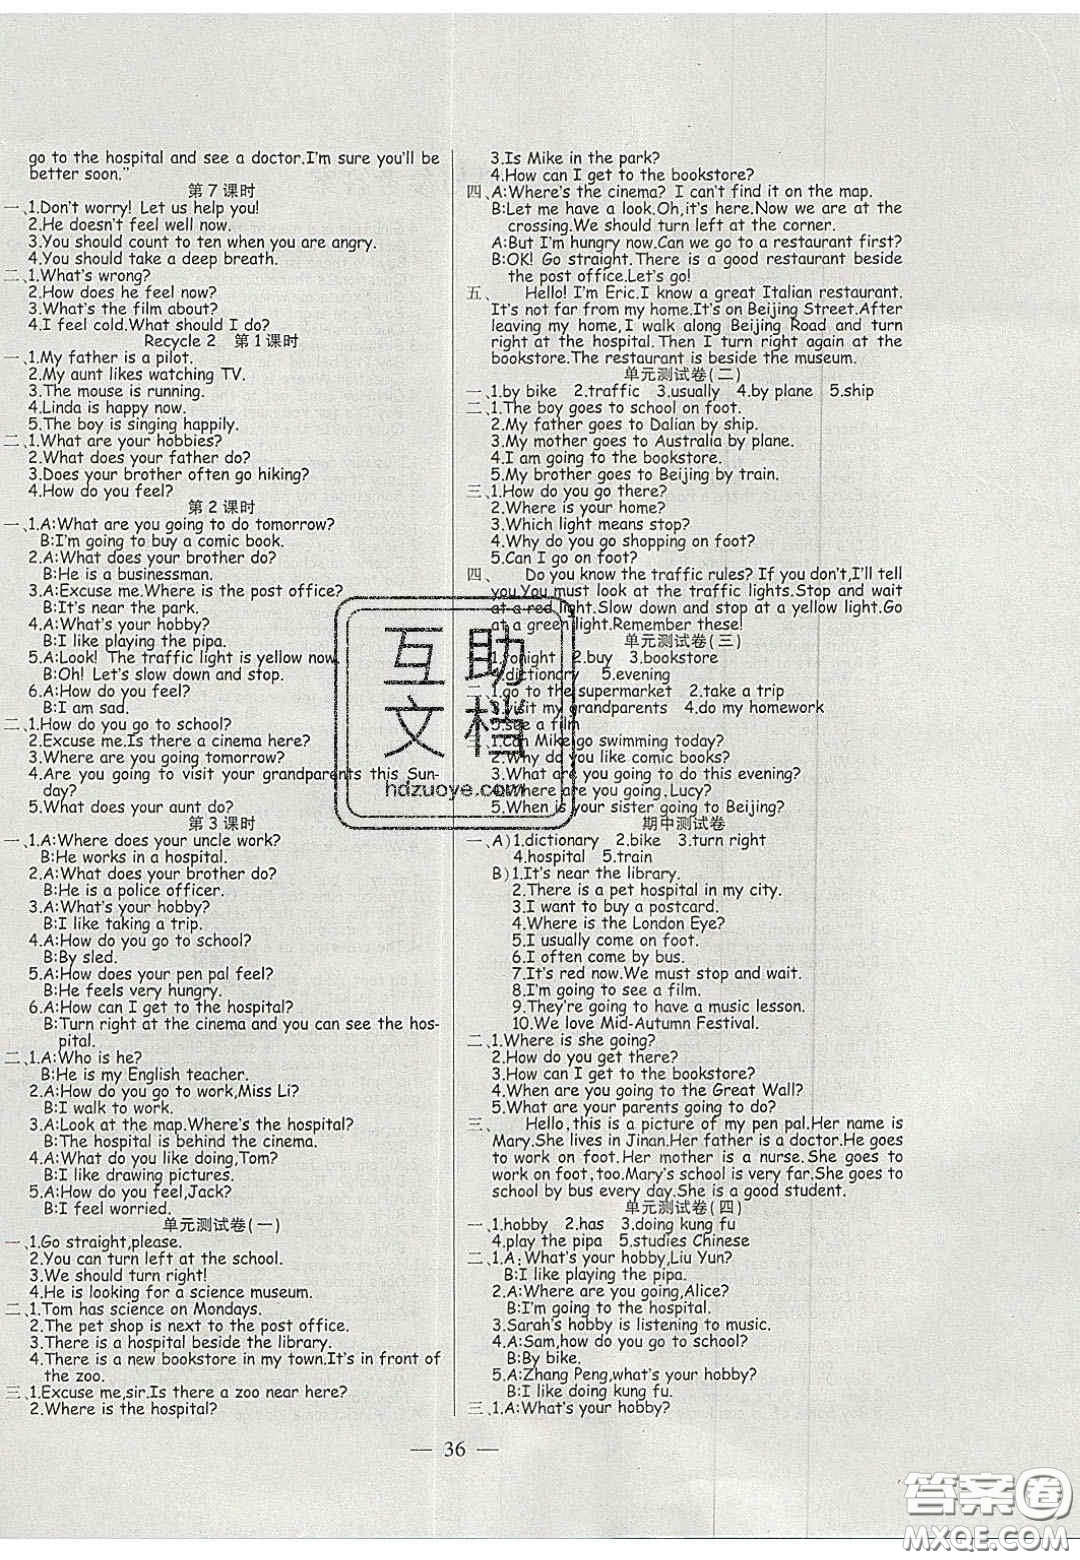 go to the hospital and see a doctor.I'm sure you'll be
better soon."
第 7 课时
一、1.Don't worry! Let us help you!
2.He doesn't feel well now.
3.You should count to ten when you are angry.
4.You should take a deep breath.
二、1.What's wrong?
2.How does he feel now?
3.What's the film about?
4.I feel cold.What should I do?
Recycle 2 第 1 课时
一、1.My father is a pilot.
2.My aunt likes watching TV.
3.The mouse is running.
4.Linda is happy now.
5.The boy is singing happily.
二、1.What are your hobbies?
2.What does your father do?
3.Does your brother often go hiking?
4.How do you feel?
第 2 课时
一、1.A:What are you going to do tomorrow?
B:I'm going to buy a comic book.
2.A:What does your brother do?
B:He is a businessman.
3.A:Excuse me.Where is the post office?
B:It's near the park.
4.A:What's your hobby?
B:I like playing the pipa.
5.A:Look! The traffic light is yellow now.
B:Oh! Let's slow down and stop.
6.A:How do you feel?
B:I am sad.
二、1.How do you go to school?
2.Excuse me.Is there a cinema here?
3.Where are you going tomorrow?
4.Are you going to visit your grandparents this Sun-
day?
5.What does your aunt do?
第 3 课时
一、1.A:Where does your uncle work?
B:He works in a hospital.
2.A:What does your brother do?
B:He is a police officer.
3.A:What's your hobby?
B:I like taking a trip.
4.A:How do you go to school?
B:By sled.
5.A:How does your pen pal feel?
B:He feels very hungry.
6.A:How can I get to the hospital?
B:Turn right at the cinema and you can see the hos-
pital.
二、1.A:Who is he?
B:He is my English teacher.
2.A:How do you go to work,Miss Li?
B:I walk to work.
3.A:Look at the map.Where's the hospital?
B:The hospital is behind the cinema.
4.A:What do you like doing,Tom?
B:I like drawing pictures.
5.A:How do you feel,Jack?
B:I feel worried.
单元测试卷(一)
一、1.Go straight,please.
2.You can turn left at the school.
3.We should turn right!
4.He is looking for a science museum.
二、1.Tom has science on Mondays.
2.The pet shop is next to the post office.
3.There is a hospital beside the library.
4.There is a new bookstore in my town.It's in front of
the zoo.
三、1.Excuse me,sir.Is there a zoo near here?
2.Where is the hospital?
3.Is Mike in the park?
4.How can I get to the bookstore?
四、A:Where's the cinema? I can't find it on the map.
B:Let me have a look.Oh,it's here.Now we are at the
crossing.We should turn left at the corner.
A:But I'm hungry now.Can we go to a restaurant first?
B:OK! Go straight.There is a good restaurant beside
the post office.Let's go!
五、 Hello! I'm Eric.I know a great Italian restaurant.
It's not far from my home.It's on Beijing Street.After
leaving my home,I walk along Beijing Road and turn
right at the hospital.Then I turn right again at the
bookstore.The restaurant is beside the museum.
单元测试卷(二)
一、1.by bike 2.traffic 3.usually 4.by plane 5.ship
二、1.The boy goes to school on foot.
2.My father goes to Dalian by ship.
3.My mother goes to Australia by plane.
4.I am going to the bookstore.
5.My brother goes to Beijing by train.
三、1.How do you go there?
2.Where is your home?
3.Which light means stop?
4.Why do you go shopping on foot?
5.Can I go on foot?
四、 Do you know the traffic rules? If you don't,I'll tell
you.You must look at the traffic lights.Stop and wait
at a red light.Slow down and stop at a yellow light.Go
at a green light.Remember these!
单元测试卷(三)
一、1.tonight 2.buy 3.bookstore
4.dictionary 5.evening
二、1.go to the supermarket 2.take a trip
3.visit my grandparents 4.do my homework
5.see a film
三、1.Can Mike go swimming today?
2.Why do you like comic books?
3.What are you going to do this evening?
4.Where are you going,Lucy?
5.When is your sister going to Beijing?
期中测试卷
一、A)1.dictionary 2.bike 3.turn right
4.hospital 5.train
B)1.It's near the library.
2.There is a pet hospital in my city.
3.I want to buy a postcard.
4.Where is the London Eye?
5.I usually come on foot.
6.I often come by bus.
7.It's red now.We must stop and wait.
8.I'm going to see a film.
9.They're going to have a music lesson.
10.We love Mid-Autumn Festival.
二、1.Where is she going?
2.How do you get there?
3.How can I get to the bookstore?
4.When are you going to the Great Wall?
5.What are your parents going to do?
三、 Hello,this is a picture of my pen pal.Her name is
Mary.She lives in Jinan.Her father is a doctor.He goes
to work on foot.Her mother is a nurse.She goes to
work on foot,too.Mary's school is very far.She goes to
school by bus every day.She is a good student.
单元测试卷(四)
一、1.hobby 2.has 3.doing kung fu
4.play the pipa 5.studies Chinese
二、1.A:What's your hobby,Liu Yun?
B:I like playing the pipa.
2.A:Where are you going,Alice?
B:I'm going to the hospital.
3.Sarah's hobby is listening to music.
4.A:Sam,how do you go to school?
B:By bike.
5.A:Zhang Peng,what's your hobby?
B:I like doing kung fu.
三、1.A:What's your hobby?
— 36 —
互助
文档
hdzuoye.com
答案圈
MXQE.COM